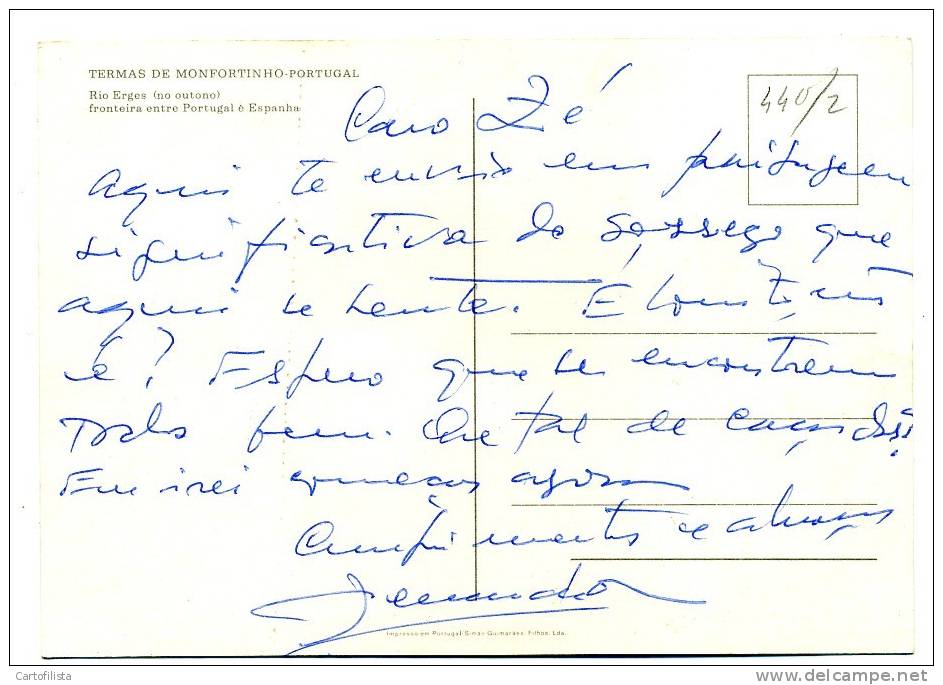 TERMAS DE MONFORTINHO-PORTUGAL
Rio Erges (no outono)
fronteira entre Portugal e Espanha
440/2
Caro Zé
Aqui te envio em paisagem
significativa do sossego que
aqui se sente. É bonito, não
é? Espero que se encontrem
todos bem. Que tal de caçadas?
Eu irei começar agora
Cumprimentos e abraços
Impresso em Portugal/Simão Guimarães, Filhos, Lda.
Cartofilista
www.delcampe.net